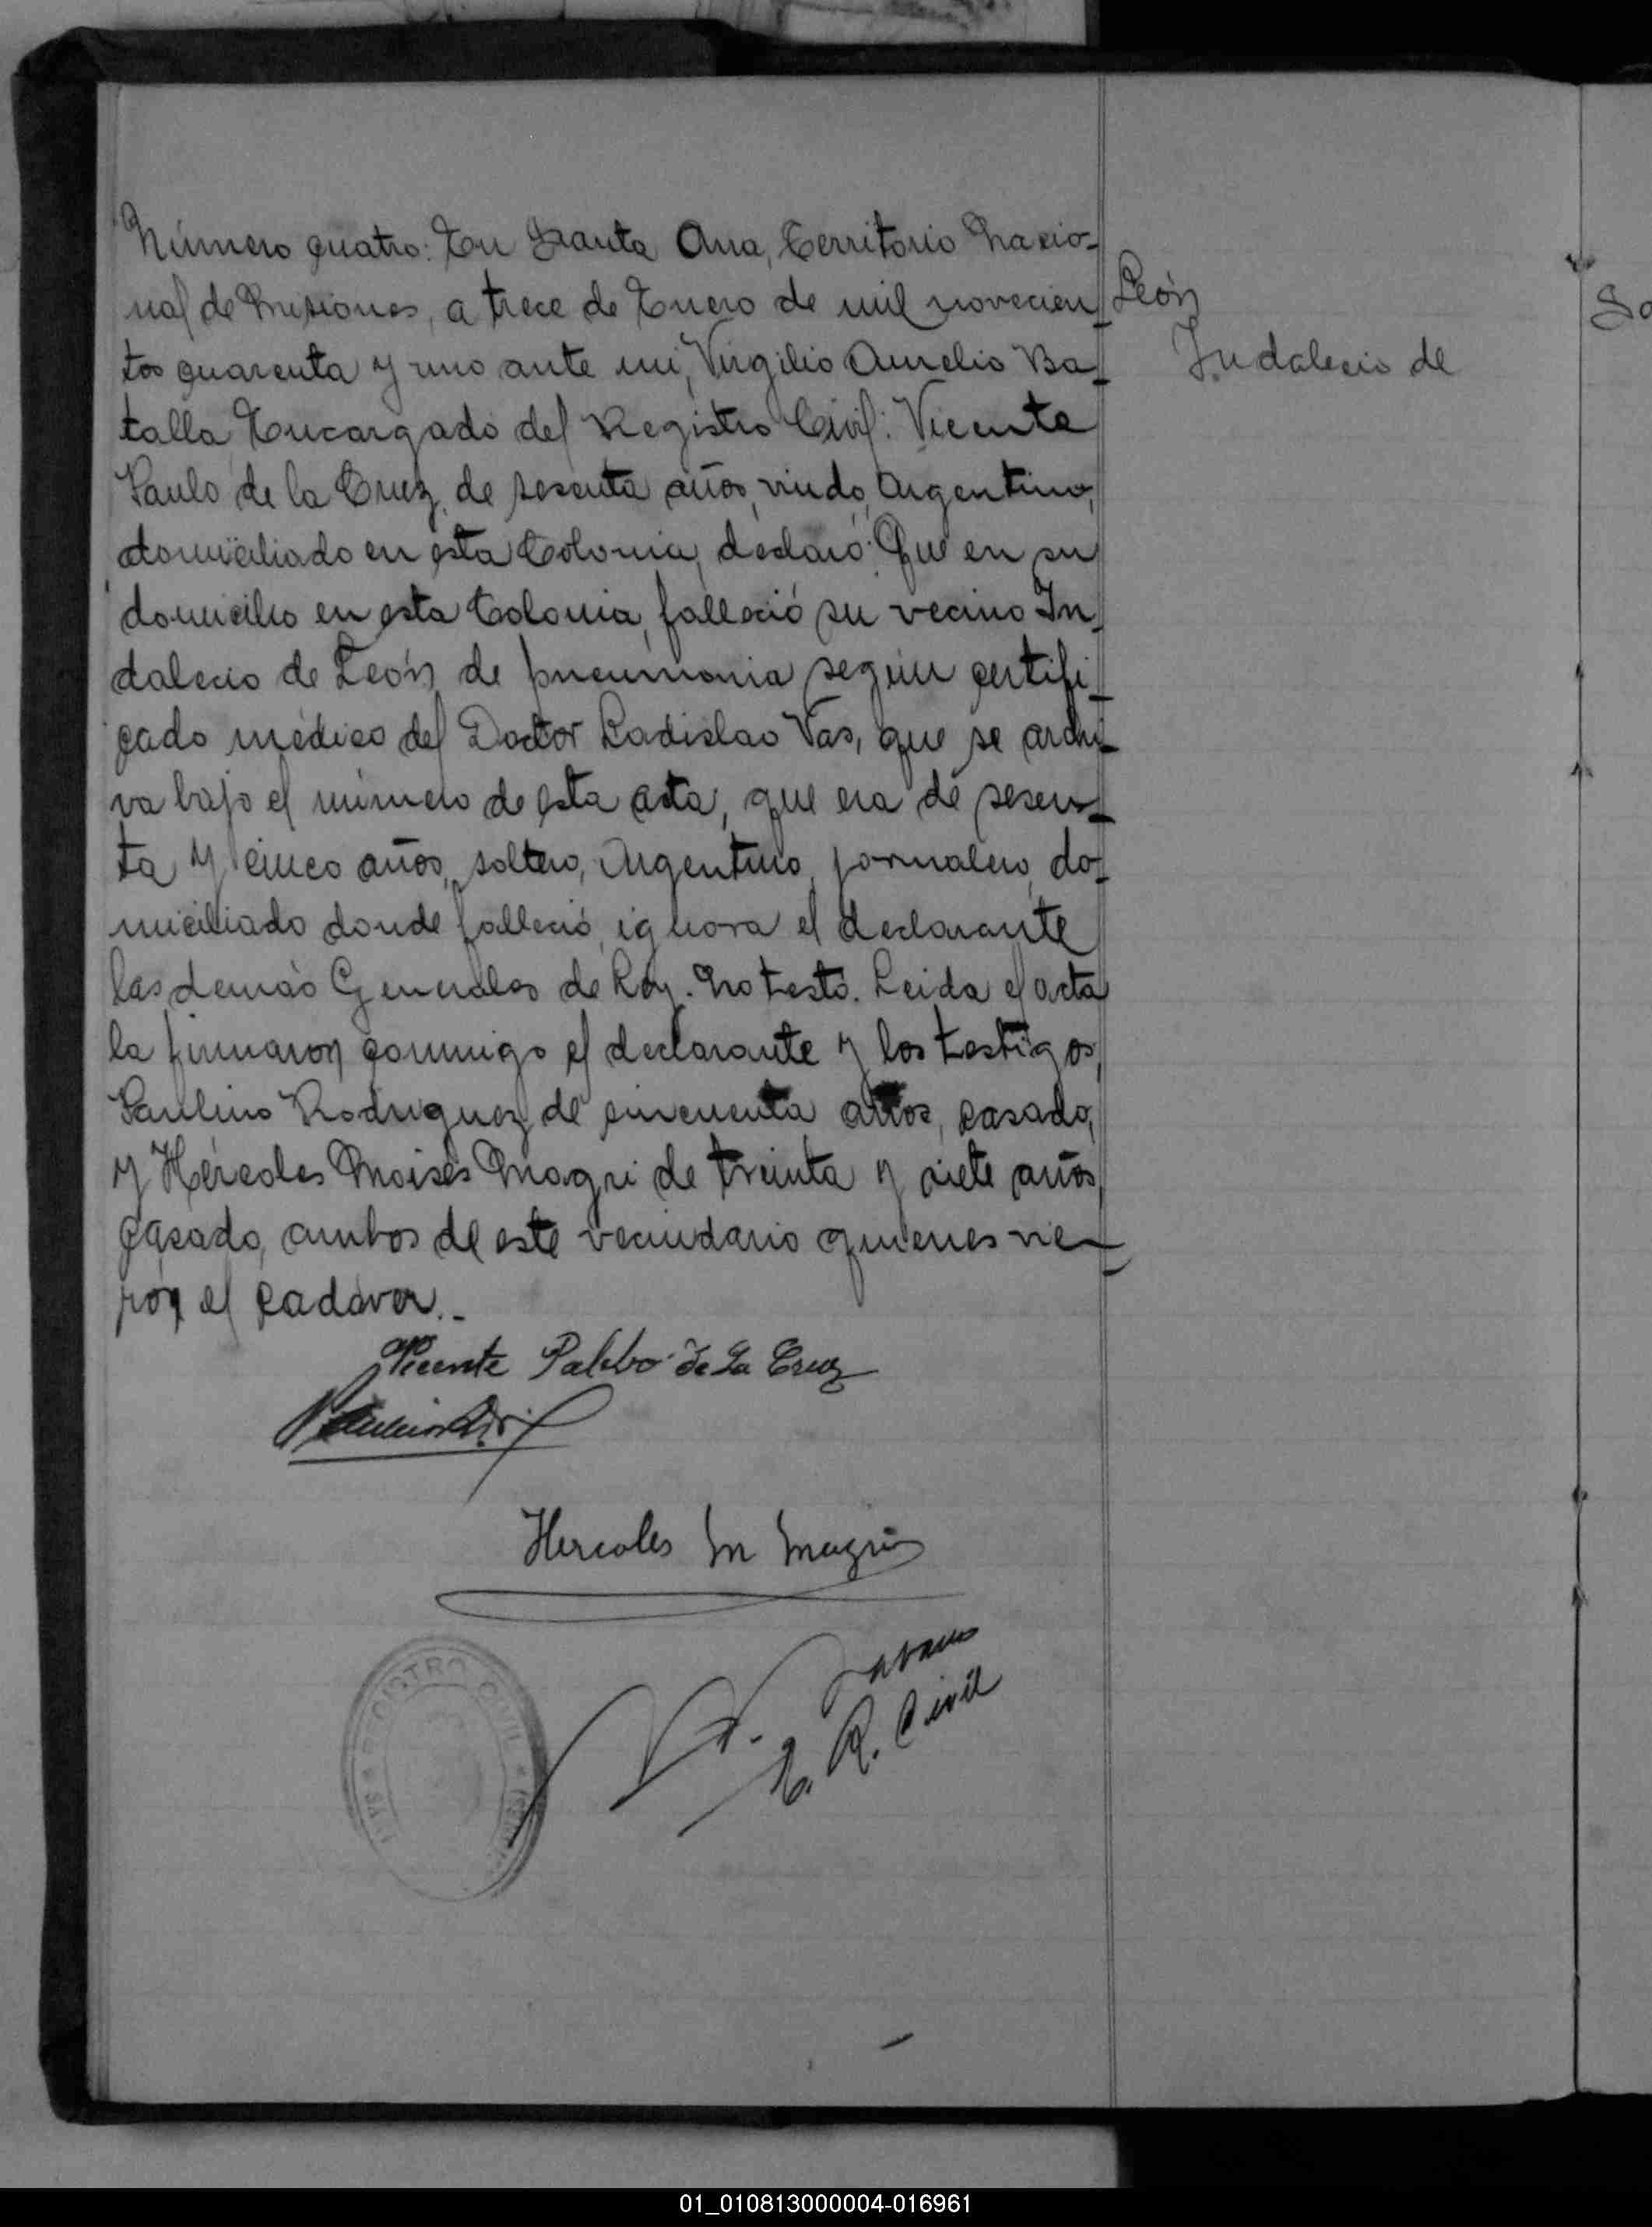 Número cuatro: En Santa Ana, Territorio Nacio-
nal de Misiones, a trece de Enero de mil novecien-
tos cuarenta y uno ante mi, Virgilio Aurelio Ba-
talla, Encargado del Registro Civil: Vicente
Paulo de la Cruz, de sesenta años, viudo, Argentino,
domiciliado en esta Colonia, declaró: Que en su
domicilio en esta Colonia, falleció su vecino In-
dalecio de León de pneumonia según certifi-
cado médico del Doctor Ladislao Vas, que se archi-
va bajo el número de esta acta, que era de sesen-
ta y cinco años, soltero, Argentino, jornalero, do-
miciliado donde falleció, ignora el declarante
las demás Generales de Ley. No testó. Leida el acta
la firmaron conmigo el declarante y los testigos,
Paulino Rodriguez de cincuenta años, casado,
y Hércoles Moisés Magri de treinta y siete años,
casado, ambos de este vecindario quienes vie-
rón el cadáver.-
León
Indalecio de
Vicente Pablo de La Cruz
Hercoles M Magri
REGISTRO CIVIL
E. R. Civil
01_010813000004-016961